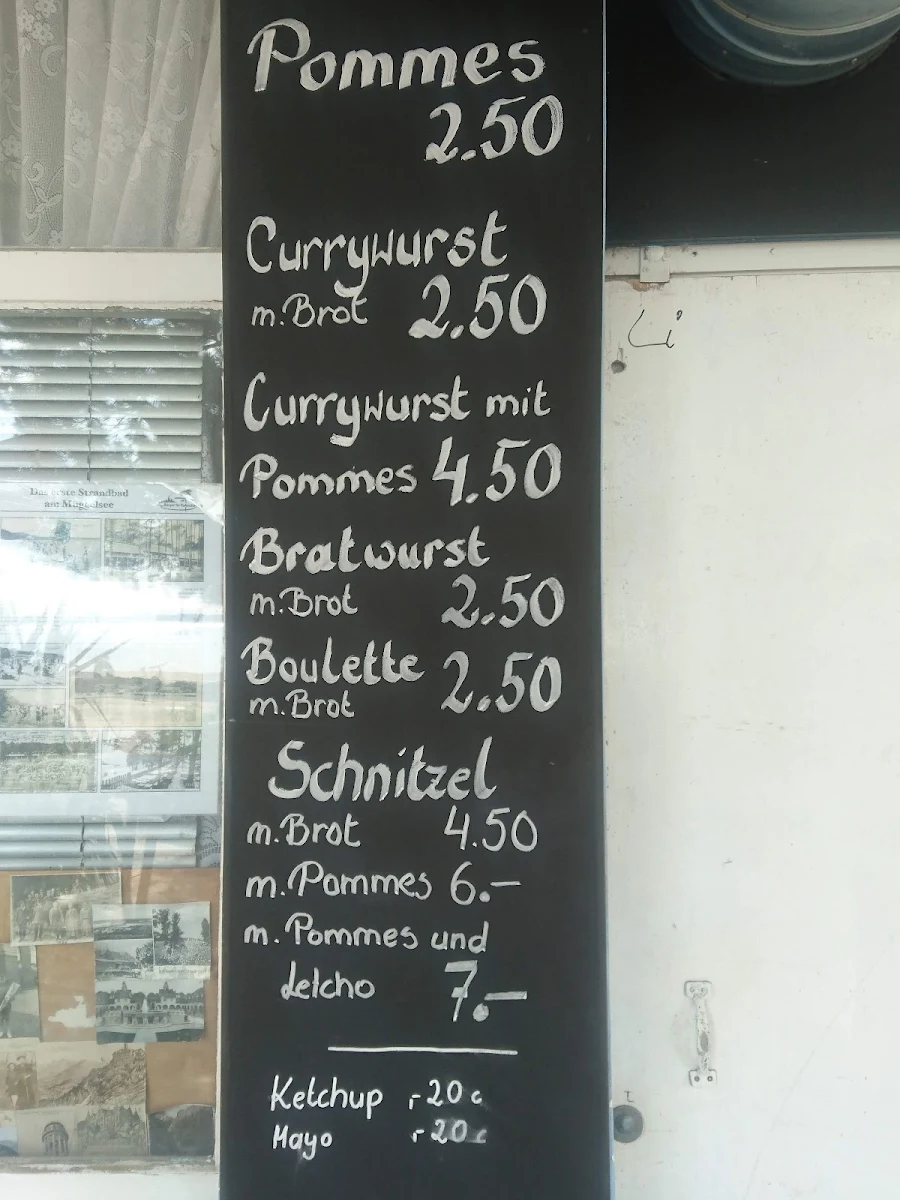 Pommes
2.50
Currywurst
m. Brot 2.50
Currywurst mit
Pommes 4.50
Bratwurst
m. Brot 2.50
Boulette
m. Brot 2.50
Schnitzel
m. Brot 4.50
m. Pommes 6.–
m. Pommes und
Letcho 7.–
Ketchup -20 c
Mayo -20 c
Das erste Strandbad
am Müggelsee